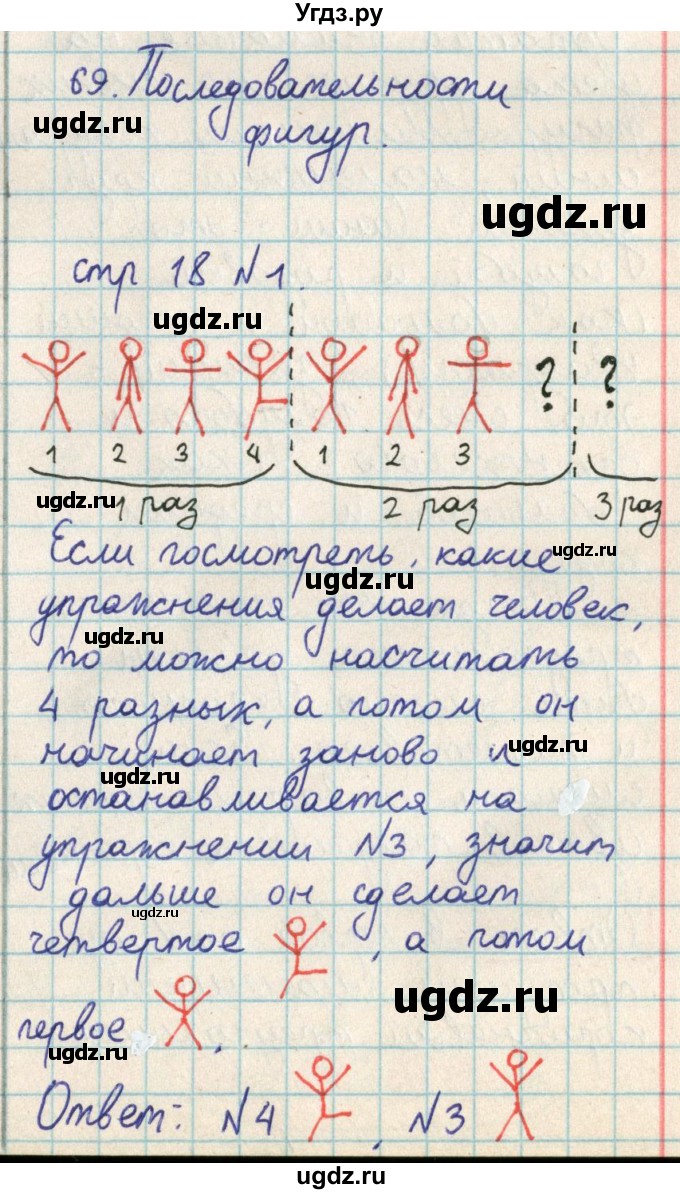 Угдз.ру
69. Последовательности
ugdz.ru
фигур.
ugdz.ru
стр 18 №1.
ugdz.ru
? ?
1 2 3 4 1 2 3
ugdz.ru
1 раз 2 раз 3 раз
Если посмотреть, какие
ugdz.ru
ugdz.ru
упражнения делает человек,
ugdz.ru
то можно насчитать
4 разных, а потом он
начинает заново и
ugdz.ru
ugdz.ru
останавливается на
упражнении №3, значит
дальше он сделает
ugdz.ru
четвертое , а потом
ugdz.ru
первое .
ugdz.ru
Ответ: №4 , №3
ugdz.ru